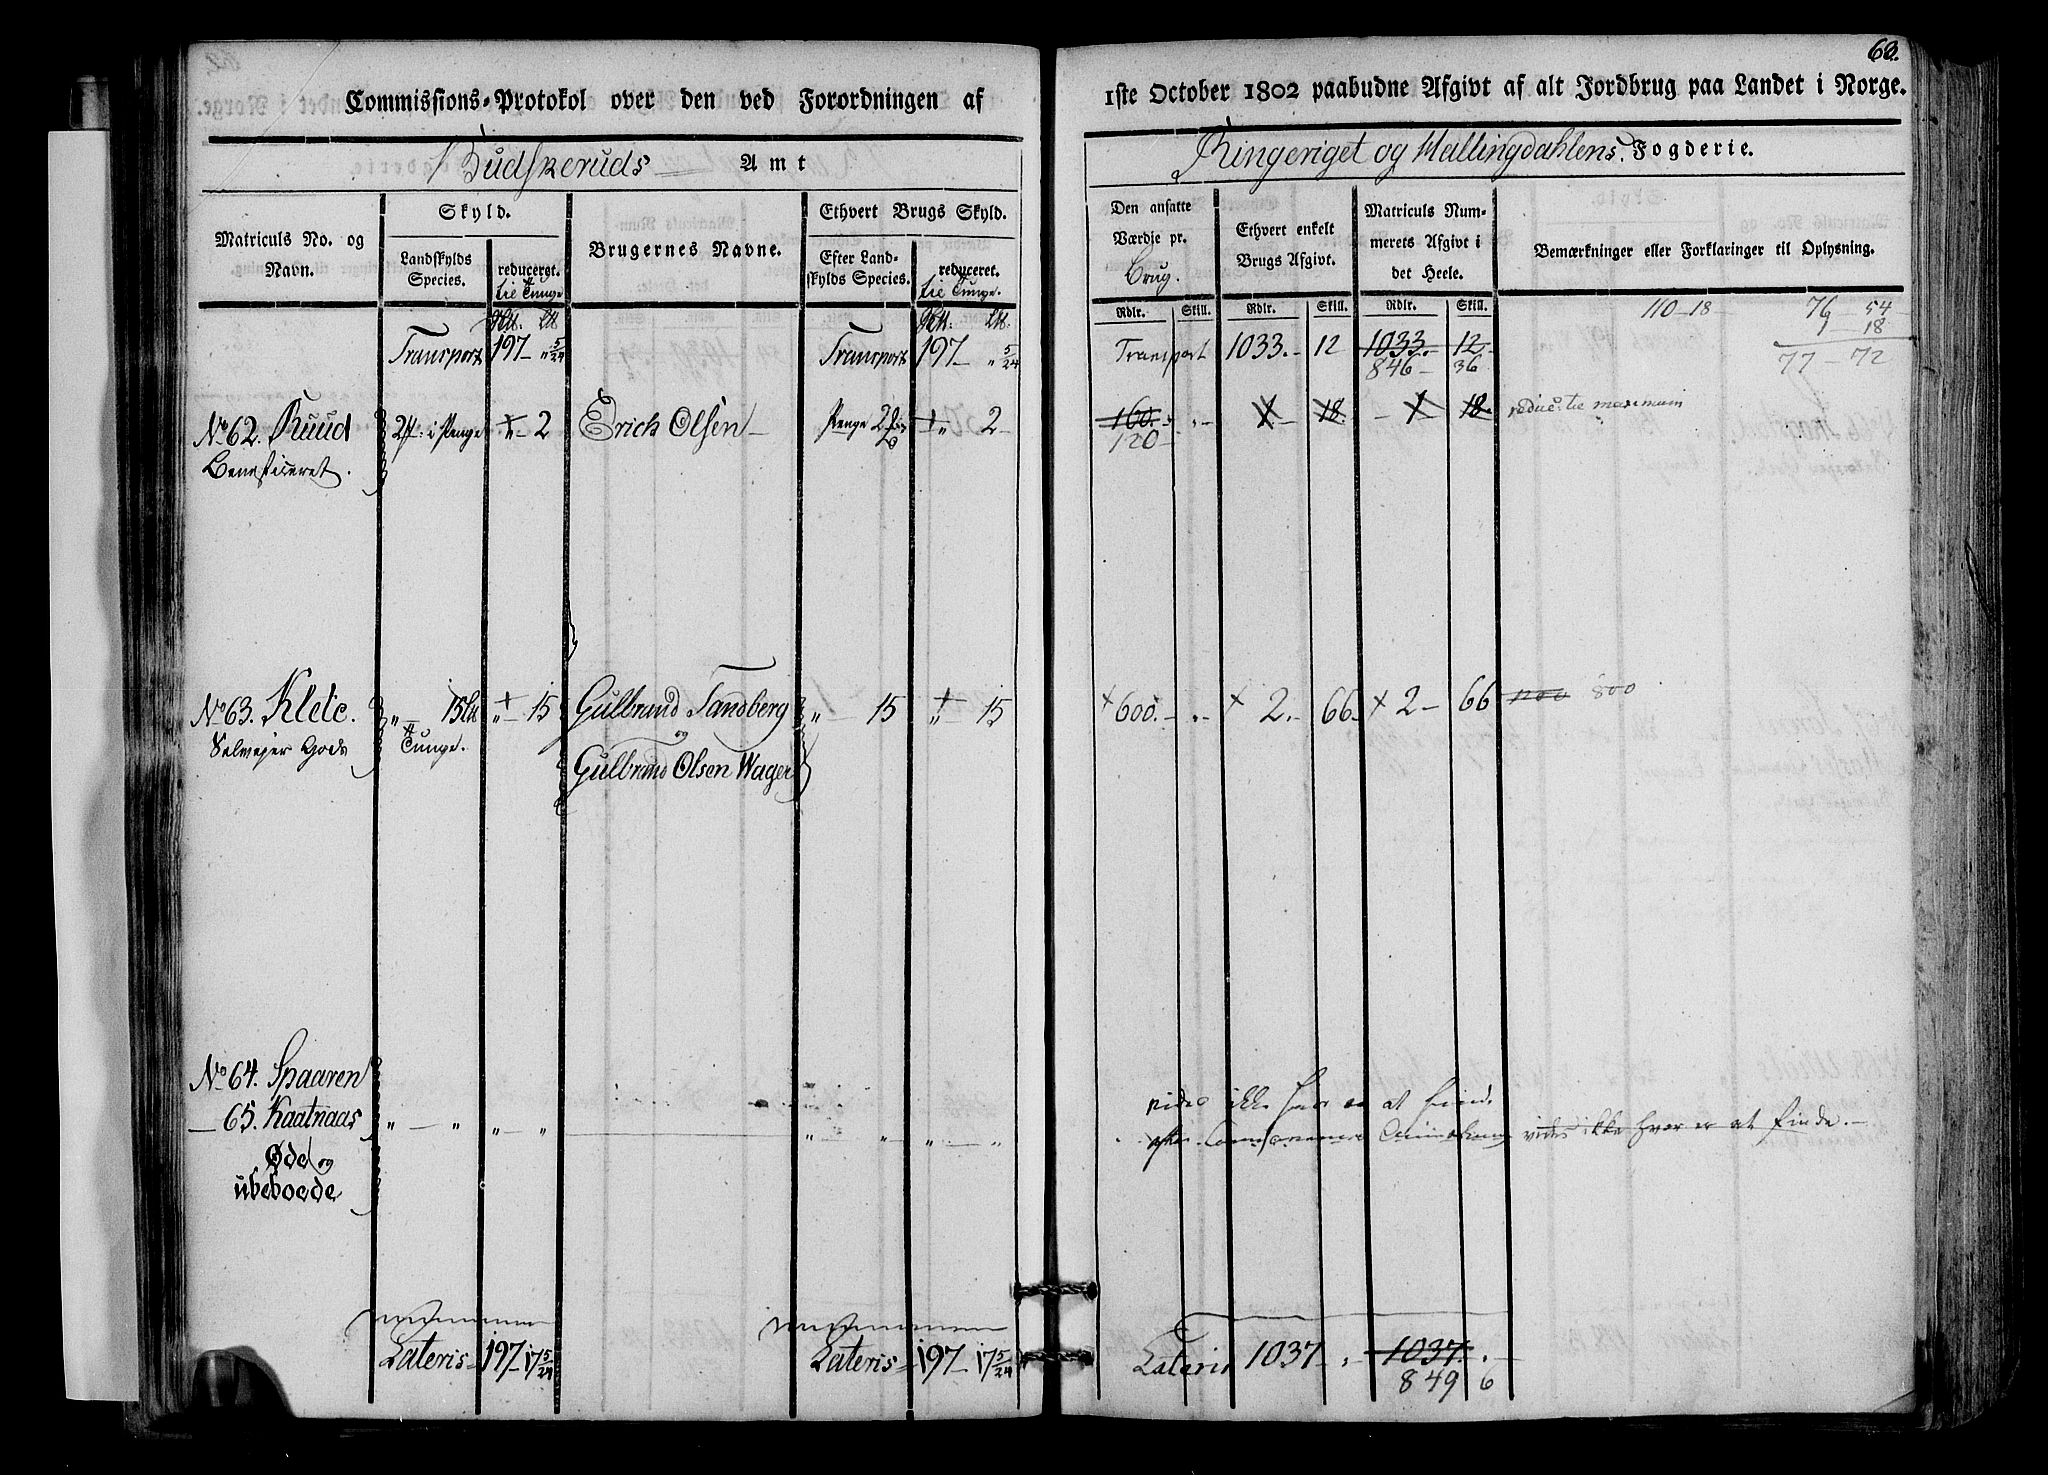 63.
Commissions-Protokol over den ved Forordningen af
1ste October 1802 paabudne Afgivt af alt Jordbrug paa Landet i Norge.
Budskeruds Amt
Ringeriget og Hallingdahlens Fogderie.
Matriculs No. og Navn.
Skyld.
Landskylds Species.
reducergt. til Tunge
Brugernes Navne.
Ethvert Brugs Skyld.
Efter Landskylds Species.
reduceret. til Tunge.
Den ansatte Værdje pr. Brug.
Ethvert enkelt Brugs Afgivt.
Matriculs Nummerets Afgivt i det Heele.
Bemærkninger eller Forklaringer til Oplysning.
Rdlr. Skill. Rdlr. Skill. Rdlr. Skill.
110-18- 76 - 54
1 - 18
77 - 72
Transport 197 - " 5/24 Transport 197 - " 5/24 Transport 1033.- 12 1033.- 12.-
846 - 36
No 62. Ruud i Penge 2 Erich Olsen - Penge 2 - 160.- " - 1 18. - 1 18. maximum
Beneficeret. 120 -
No 63. Kleve. " - 15 " - 15 Gulbrand Sandberg " 15 " 15 600.- " - 2.- 66. 2 - 66 1200 800
Selvejer Gods Tunge. og
Gulbrand Olsen Wager
No 64. Spaaren ikke hvor er at finde
65. Kaatnaas " - " " - " " " " - " efter vides ikke hvor er at finde.-
Øde og
ubeboede
Lateris 197 - 17 5/24 Lateris 197 - 17 5/24 Lateris 1037 - " - 1037. " -
849 6